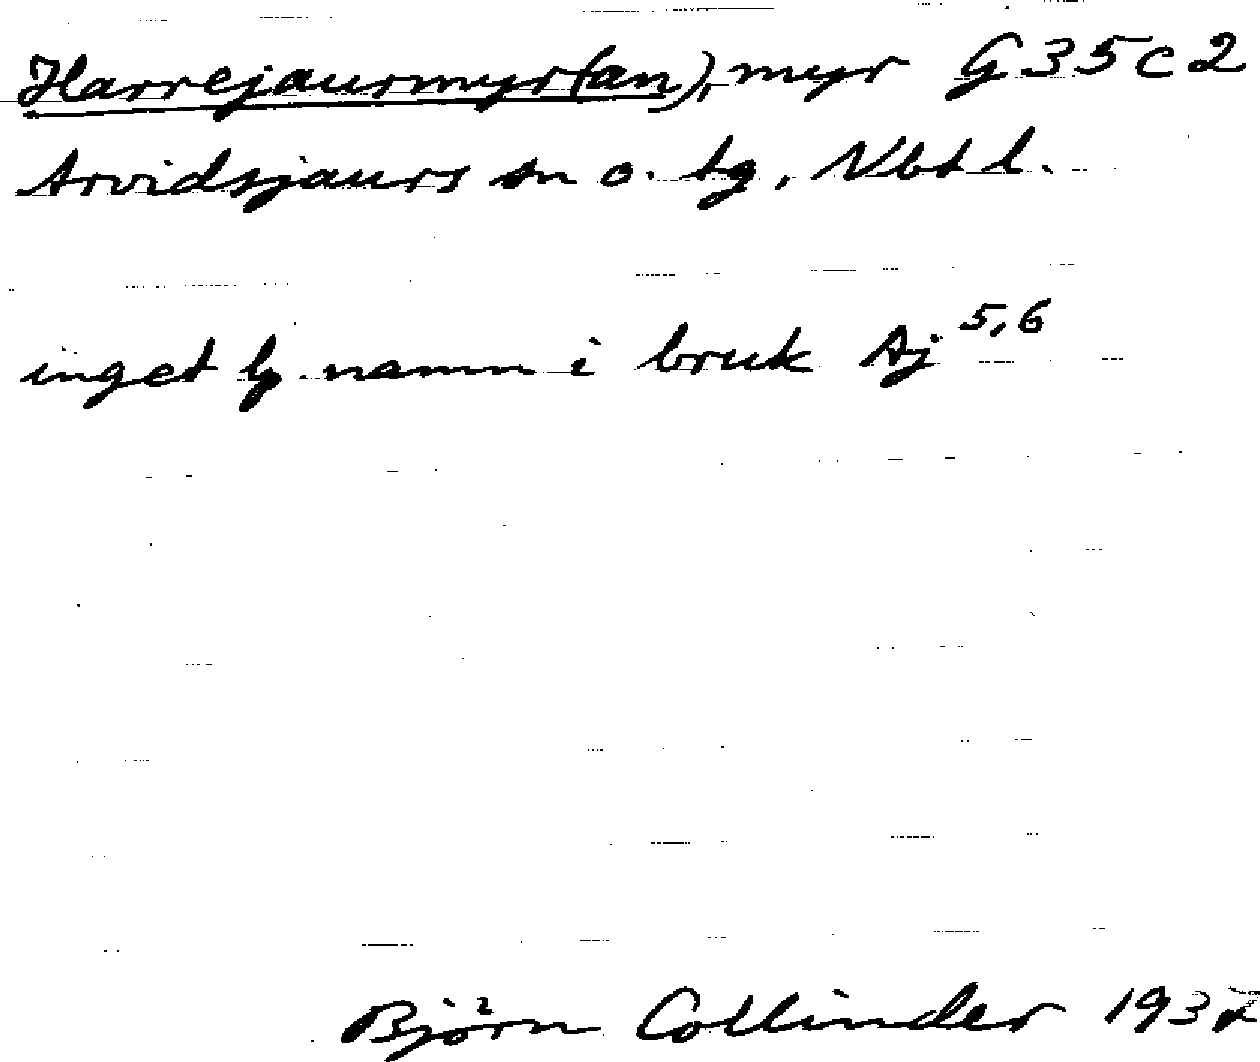 Harrejaurmyr(an), myr G 35 c 2
Arvidsjaurs sn o. tg, Nbt l.
inget lp namn i bruk Aj 5,6
Björn Collinder 1937